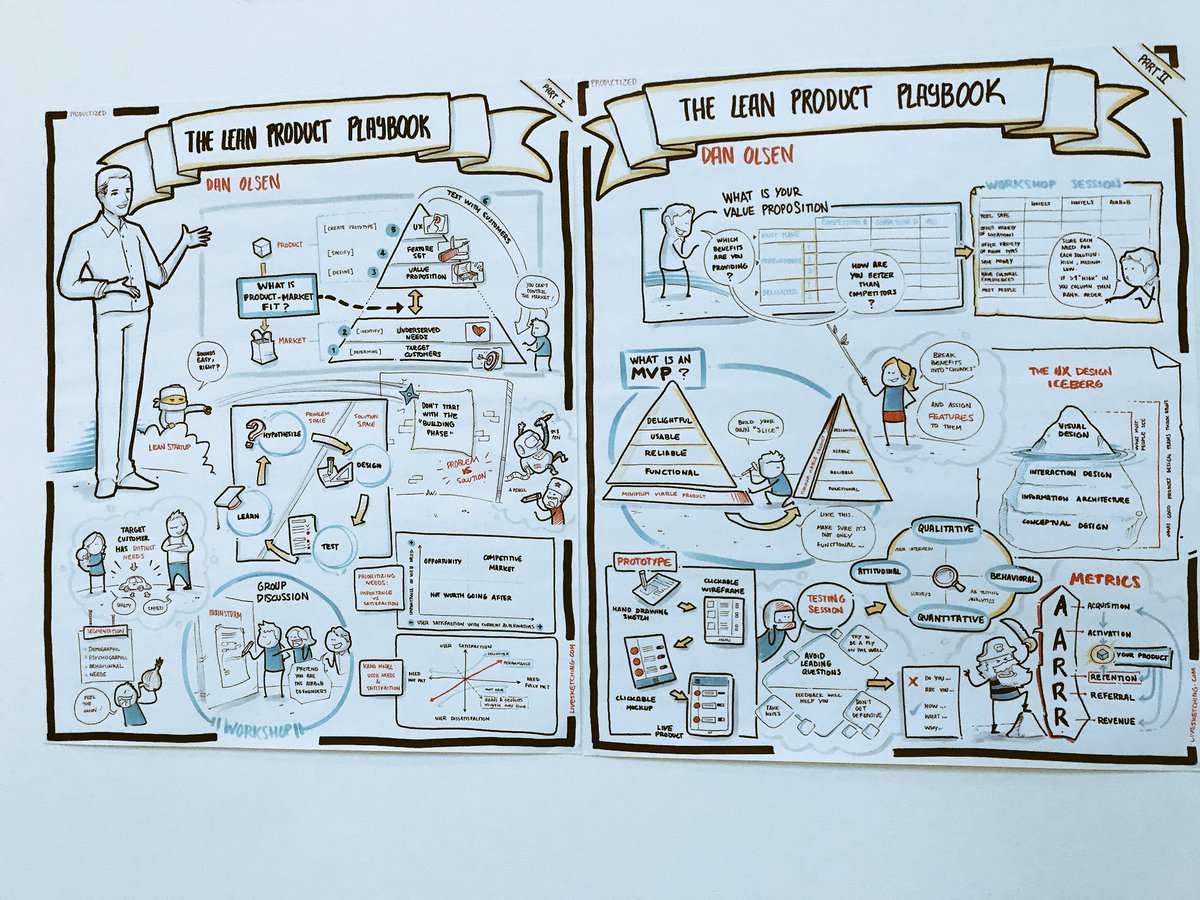 PRODUCTIZED
PART I
THE LEAN PRODUCT PLAYBOOK
DAN OLSEN
TEST WITH CUSTOMERS
6
[CREATE PROTOTYPE]
5
UX
PRODUCT
[SPECIFY]
4
FEATURE
SET
[DEFINE]
3
VALUE
PROPOSITION
WHAT IS
PRODUCT-MARKET
FIT?
YOU CAN'T
CONTROL
THE MARKET!
MARKET
2
[IDENTIFY]
UNDERSERVED
NEEDS
1
[DETERMINE]
TARGET
CUSTOMERS
SOUNDS
EASY,
RIGHT?
LEAN STARTUP
PROBLEM
SPACE
SOLUTION
SPACE
HYPOTHESIZE
DESIGN
LEARN
TEST
DON'T START
WITH THE
"BUILDING
PHASE"
PROBLEM
VS
SOLUTION
A PENCIL
TARGET
CUSTOMER
HAS DISTINCT
NEEDS
SAFETY
SPEED
SEGMENTATION
DEMOGRAPHIC
PSYCHOGRAPHIC
BEHAVIOURAL
NEEDS
PEEL
THE
ONION!
GROUP
DISCUSSION
BRAINSTORM
PRETEND
YOU ARE
THE AIRBNB
CO-FOUNDERS
WORKSHOP
PRIORITIZING
NEEDS:
IMPORTANCE
VS
SATISFACTION
IMPORTANCE OF USER NEED
OPPORTUNITY
COMPETITIVE
MARKET
NOT WORTH GOING AFTER
USER SATISFACTION WITH CURRENT ALTERNATIVES
KANO MODEL
USER NEEDS
&
SATISFACTION
USER SATISFACTION
DELIGHTER
PERFORMANCE
NEED
NOT MET
NEED
FULLY MET
MUST HAVE
NEEDS & FEATURES
MIGRATE OVER TIME
USER DISSATISFACTION
LIVESKETCHING.COM
PRODUCTIZED
PART II
THE LEAN PRODUCT PLAYBOOK
DAN OLSEN
WHAT IS YOUR
VALUE PROPOSITION
WHICH
BENEFITS
ARE YOU
PROVIDING
?
COMPETITOR A
COMPETITOR B
YOU
MUST HAVE
PERFORMANCE
DELIGHTER
HOW ARE
YOU BETTER
THAN
COMPETITORS
?
WORKSHOP SESSION
HOTELS
HOSTELS
AIRBNB
FEEL SAFE
OFFER VARIETY
OF LOCATIONS
OFFER VARIETY
OF ROOM TYPES
SAVE MONEY
HAVE CULTURAL
EXPERIENCES
MEET PEOPLE
SCORE EACH
NEED FOR
EACH SOLUTION:
HIGH, MEDIUM,
LOW.
IF >1 "HIGH" IN
YOU COLUMN THEN
RANK ORDER
WHAT IS AN
MVP?
DELIGHTFUL
USABLE
RELIABLE
FUNCTIONAL
MINIMUM VIABLE PRODUCT
BUILD YOUR
OWN "SLICE"
MINIMUM VIABLE PRODUCT
DELIGHTFUL
USABLE
RELIABLE
FUNCTIONAL
LIKE THIS.
MAKE SURE IT'S
NOT ONLY
FUNCTIONAL...
BREAK
BENEFITS
INTO "CHUNKS"
AND ASSIGN
FEATURES
TO THEM
THE UX DESIGN
ICEBERG
VISUAL
DESIGN
INTERACTION DESIGN
INFORMATION ARCHITECTURE
CONCEPTUAL DESIGN
WHAT MOST
PEOPLE SEE
WHAT GOOD PRODUCT DESIGN TEAMS THINK ABOUT
PROTOTYPE
HAND DRAWING
SKETCH
CLICKABLE
WIREFRAME
MENU
CLICKABLE
MOCKUP
LIVE
PRODUCT
TESTING
SESSION
TRY TO
BE A FLY
ON THE WALL
AVOID
LEADING
QUESTIONS
FEEDBACK WILL
HELP YOU
TAKE
NOTES
DON'T
GET
DEFENSIVE
QUALITATIVE
USER INTERVIEW
ATTITUDINAL
BEHAVIORAL
SURVEYS
AB TESTING
ANALYTICS
QUANTITATIVE
DO YOU...
ARE YOU...
HOW...
WHAT...
WHY...
METRICS
AARRR
ACQUISITION
ACTIVATION
YOUR PRODUCT
RETENTION
REFERRAL
REVENUE
LIVESKETCHING.COM